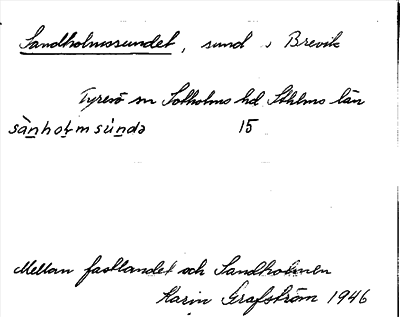 Sandholmssundet, sund i Brevik
Tyresö sn Sotholms hd Sthlms län
sàn̲hoḻmsún̲də 15
Mellan fastlandet och Sandholmen
Karin Grafström 1946